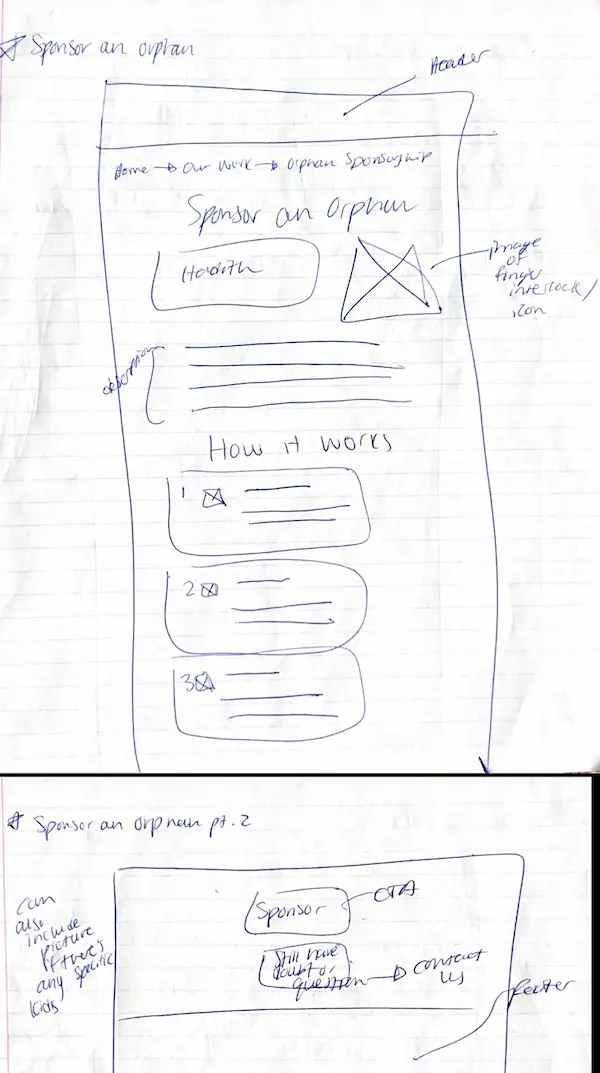 Sponsor an orphan
Header
Home → Our Work → Orphan Sponsorship
Sponsor an Orphan
Hadith
Image
of
finger
interlock/
icon
description
How it works
1
2
3
Sponsor an orphan pt.2
can
also
include
picture
if there's
any specific
kids
Sponsor
CTA
Still have
doubt or
question → contact
us
footer